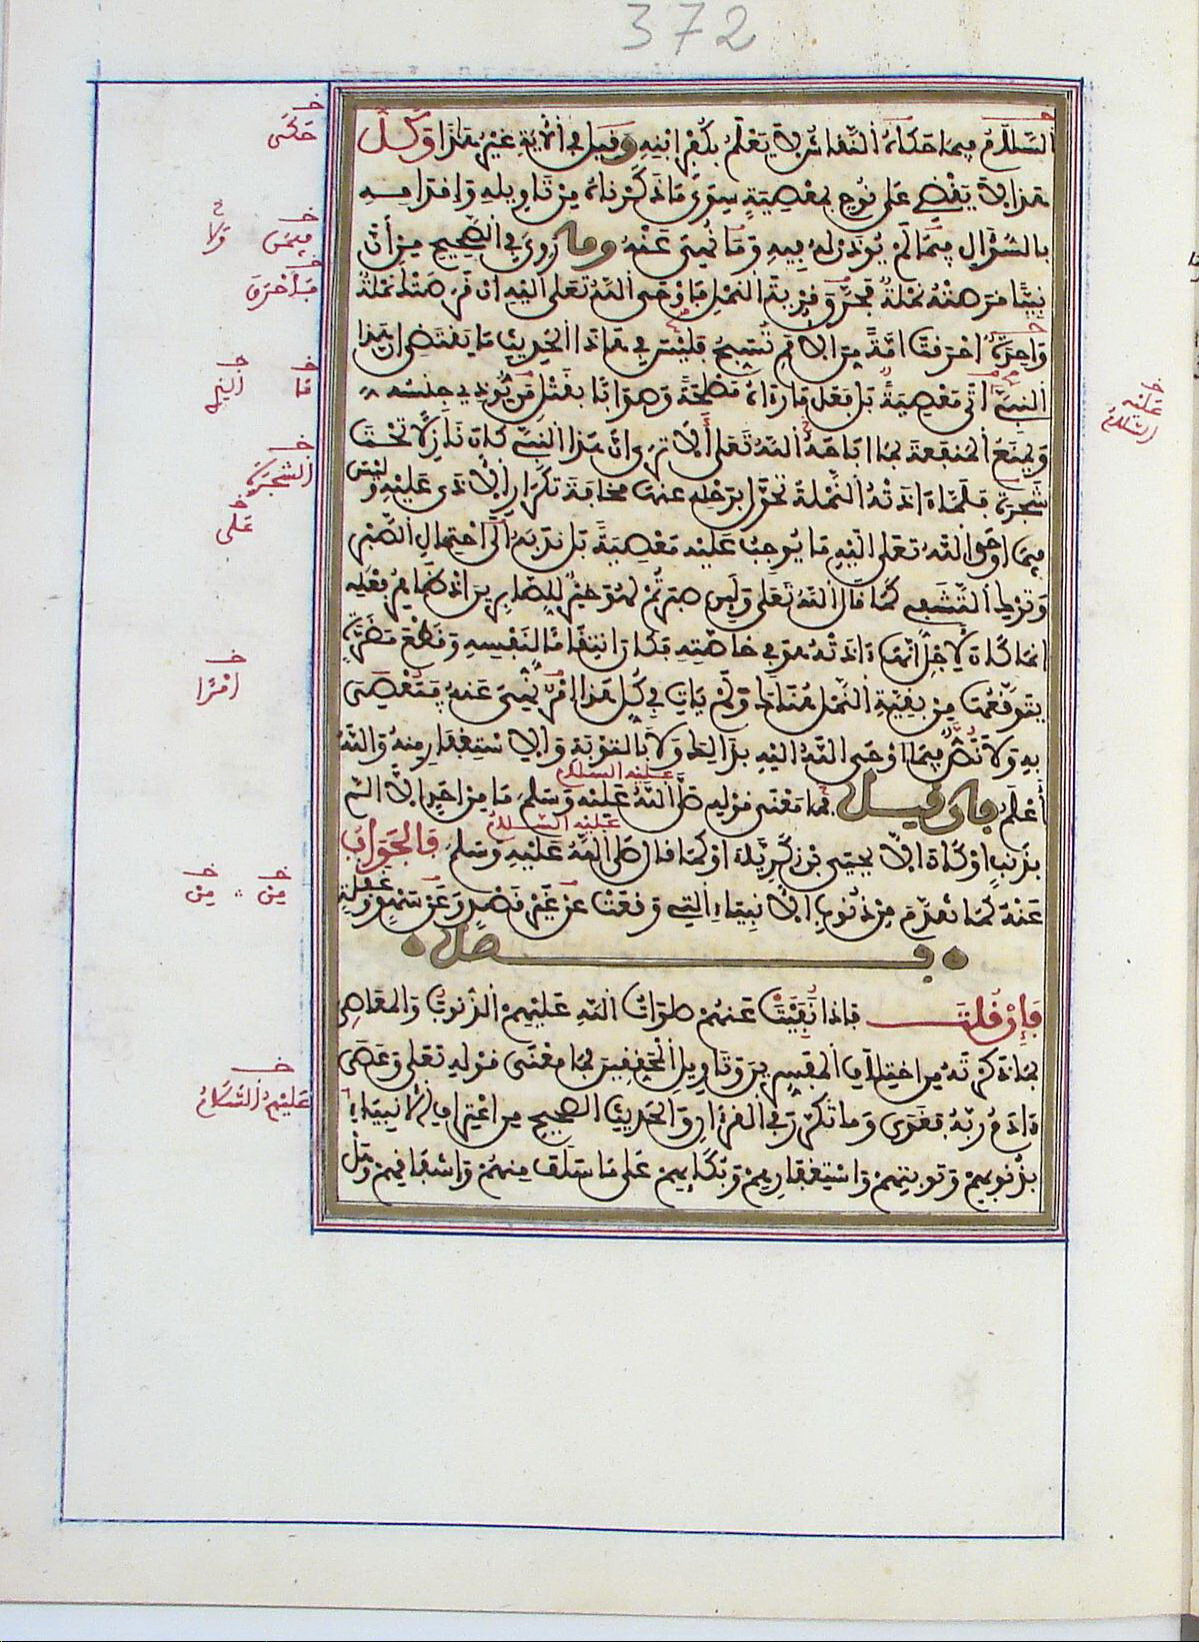 372
السلام فيما حكاه النقاش لا يعلم بكفر ابنه وقيل في الآية غير هذا وكل
هذا لا يقضي على نوح بمعصية سوى ما ذكرناه من تأويله وإقدامه
بالسؤال فيما لم يؤذن له فيه وما نهي عنه وما روي في الصحيح من أن
نبيئا قرصته نملة فحرق قرية النمل فأوحى الله تعلى اليه ان قرصتك نملة
واحدة احرقت امة من الامم تسبح فليس في هاذا الحديث ما يقتضي ان هذا
النبي اتى معصية بل فعل ما رءاه مصلحة وصوابا بقتل من يؤذي جنسه
ويمنع المنفعة بما اباحه الله تعلى ألا ترى ان هذا النبي كان نازلا تحت
شجرة فلما ءاذته النملة تحول برحله عنها مخافة تكرار الأذى عليه وليس
فيما اوحى الله تعلى اليه ما يوجب عليه معصية بل ندبه الى احتمال الصبر
وترك التشفي كما قال الله تعلى ولين صبرتم لهو خير للصابرين اذ ظاهر فعله
انما كان لأجل انها ءاذته هو في خاصته فكان انتقاما لنفسه وقطع مضرة
يتوقعها من بقية النمل هناك ولم يات في كل هذا امر نهي عنه فيعصى
به ولا نص فيما اوحى الله اليه بذالك ولا بالتوبة والاستغفار منه والله
أعلم فإن قيل فما معنى قوله صلى الله عليه وسلم ما من احد الا الم
عليه السلام
بذنب او كاد الا يحيى بن زكرياء او كما قال صلى الله عليه وسلم فالجواب
عليه السلام
عنه كما تقدم من ذنوب الانبياء التي وقعت عن غير قصد وعن سهو وغفلة
فصل
فإن قلت فاذا نفيت عنهم صلوات الله عليهم الذنوب والمعاصي
بما ذكرته من اختلاف المفسرين وتاويل المحققين فما معنى قوله تعلى وعصى
ءادم ربه فغوى وما تكرر في القرءان والحديث الصحيح من اعتراف الأنبياء
بذنوبهم وتوبتهم واستغفارهم وبكايهم على ما سلف منهم واشفاقهم وهل
حكى
فيمن
ولا
فأحرق
ما
النبي
عليه
السلام
الشجرة
على
امرا
من
من
عليهم السلام